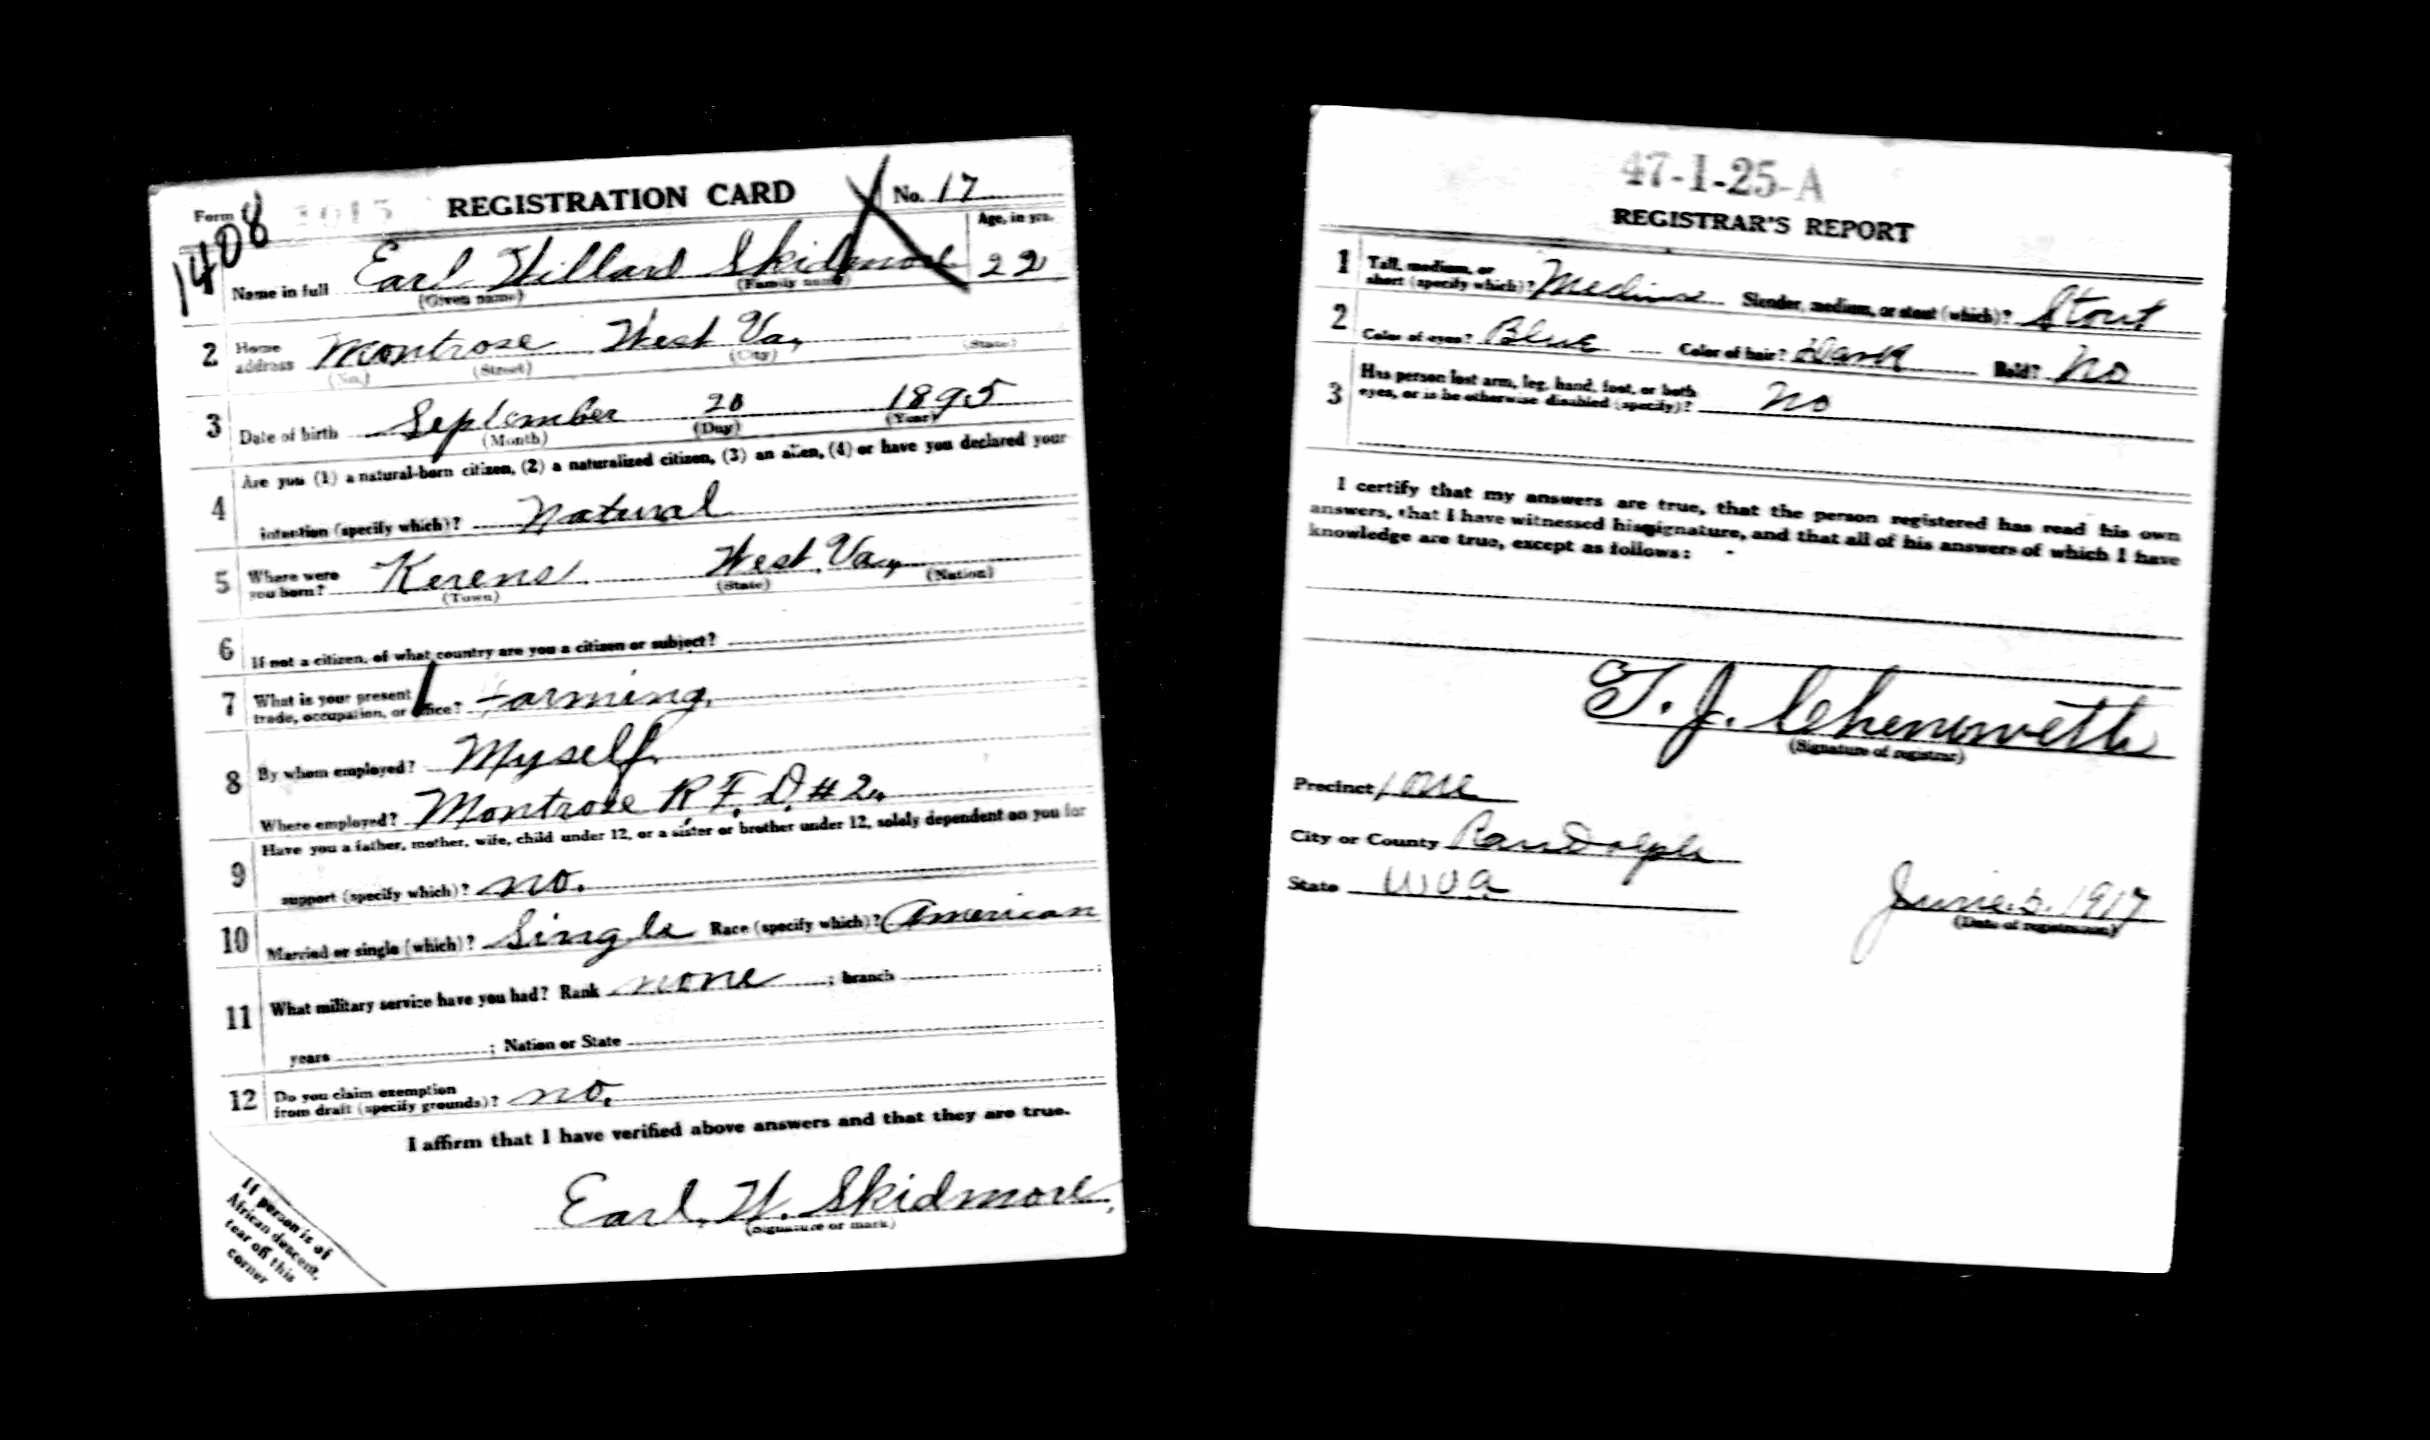 Form 1 1015 REGISTRATION CARD No. 17
1408
Age, in yrs.
Name in full Earl Willard Skidmore 22
(Given name) (Family name)
2 Home address Montrose West Va.
(No.) (Street) (City) (State)
3 Date of birth September 20 1895
(Month) (Day) (Year)
4 Are you (1) a natural-born citizen, (2) a naturalized citizen, (3) an alien, (4) or have you declared your
intention (specify which)? Natural
5 Where were you born? Kerens West Va.
(Town) (State) (Nation)
6 If not a citizen, of what country are you a citizen or subject?
7 What is your present
trade, occupation, or office? Farming.
8 By whom employed? Myself.
Where employed? Montrose R.F.D. #2.
9 Have you a father, mother, wife, child under 12, or a sister or brother under 12, solely dependent on you for
support (specify which)? no.
10 Married or single (which)? Single Race (specify which)? American
11 What military service have you had? Rank none ; branch ;
years ; Nation or State
12 Do you claim exemption
from draft (specify grounds)? no.
I affirm that I have verified above answers and that they are true.
Earl W. Skidmore
(Signature or mark)
If person is of
African descent,
tear off this
corner
47-1-25-A
REGISTRAR'S REPORT
1 Tall, medium, or
short (specify which)? Medium Slender, medium, or stout (which)? Stout
2 Color of eyes? Blue Color of hair? Dark Bald? No
3 Has person lost arm, leg, hand, foot, or both
eyes, or is he otherwise disabled (specify)? No
I certify that my answers are true, that the person registered has read his own
answers, that I have witnessed his signature, and that all of his answers of which I have
knowledge are true, except as follows:
T. J. Chenoweth
(Signature of registrar)
Precinct one
City or County Randolph
State W Va
June 5, 1917
(Date of registration)